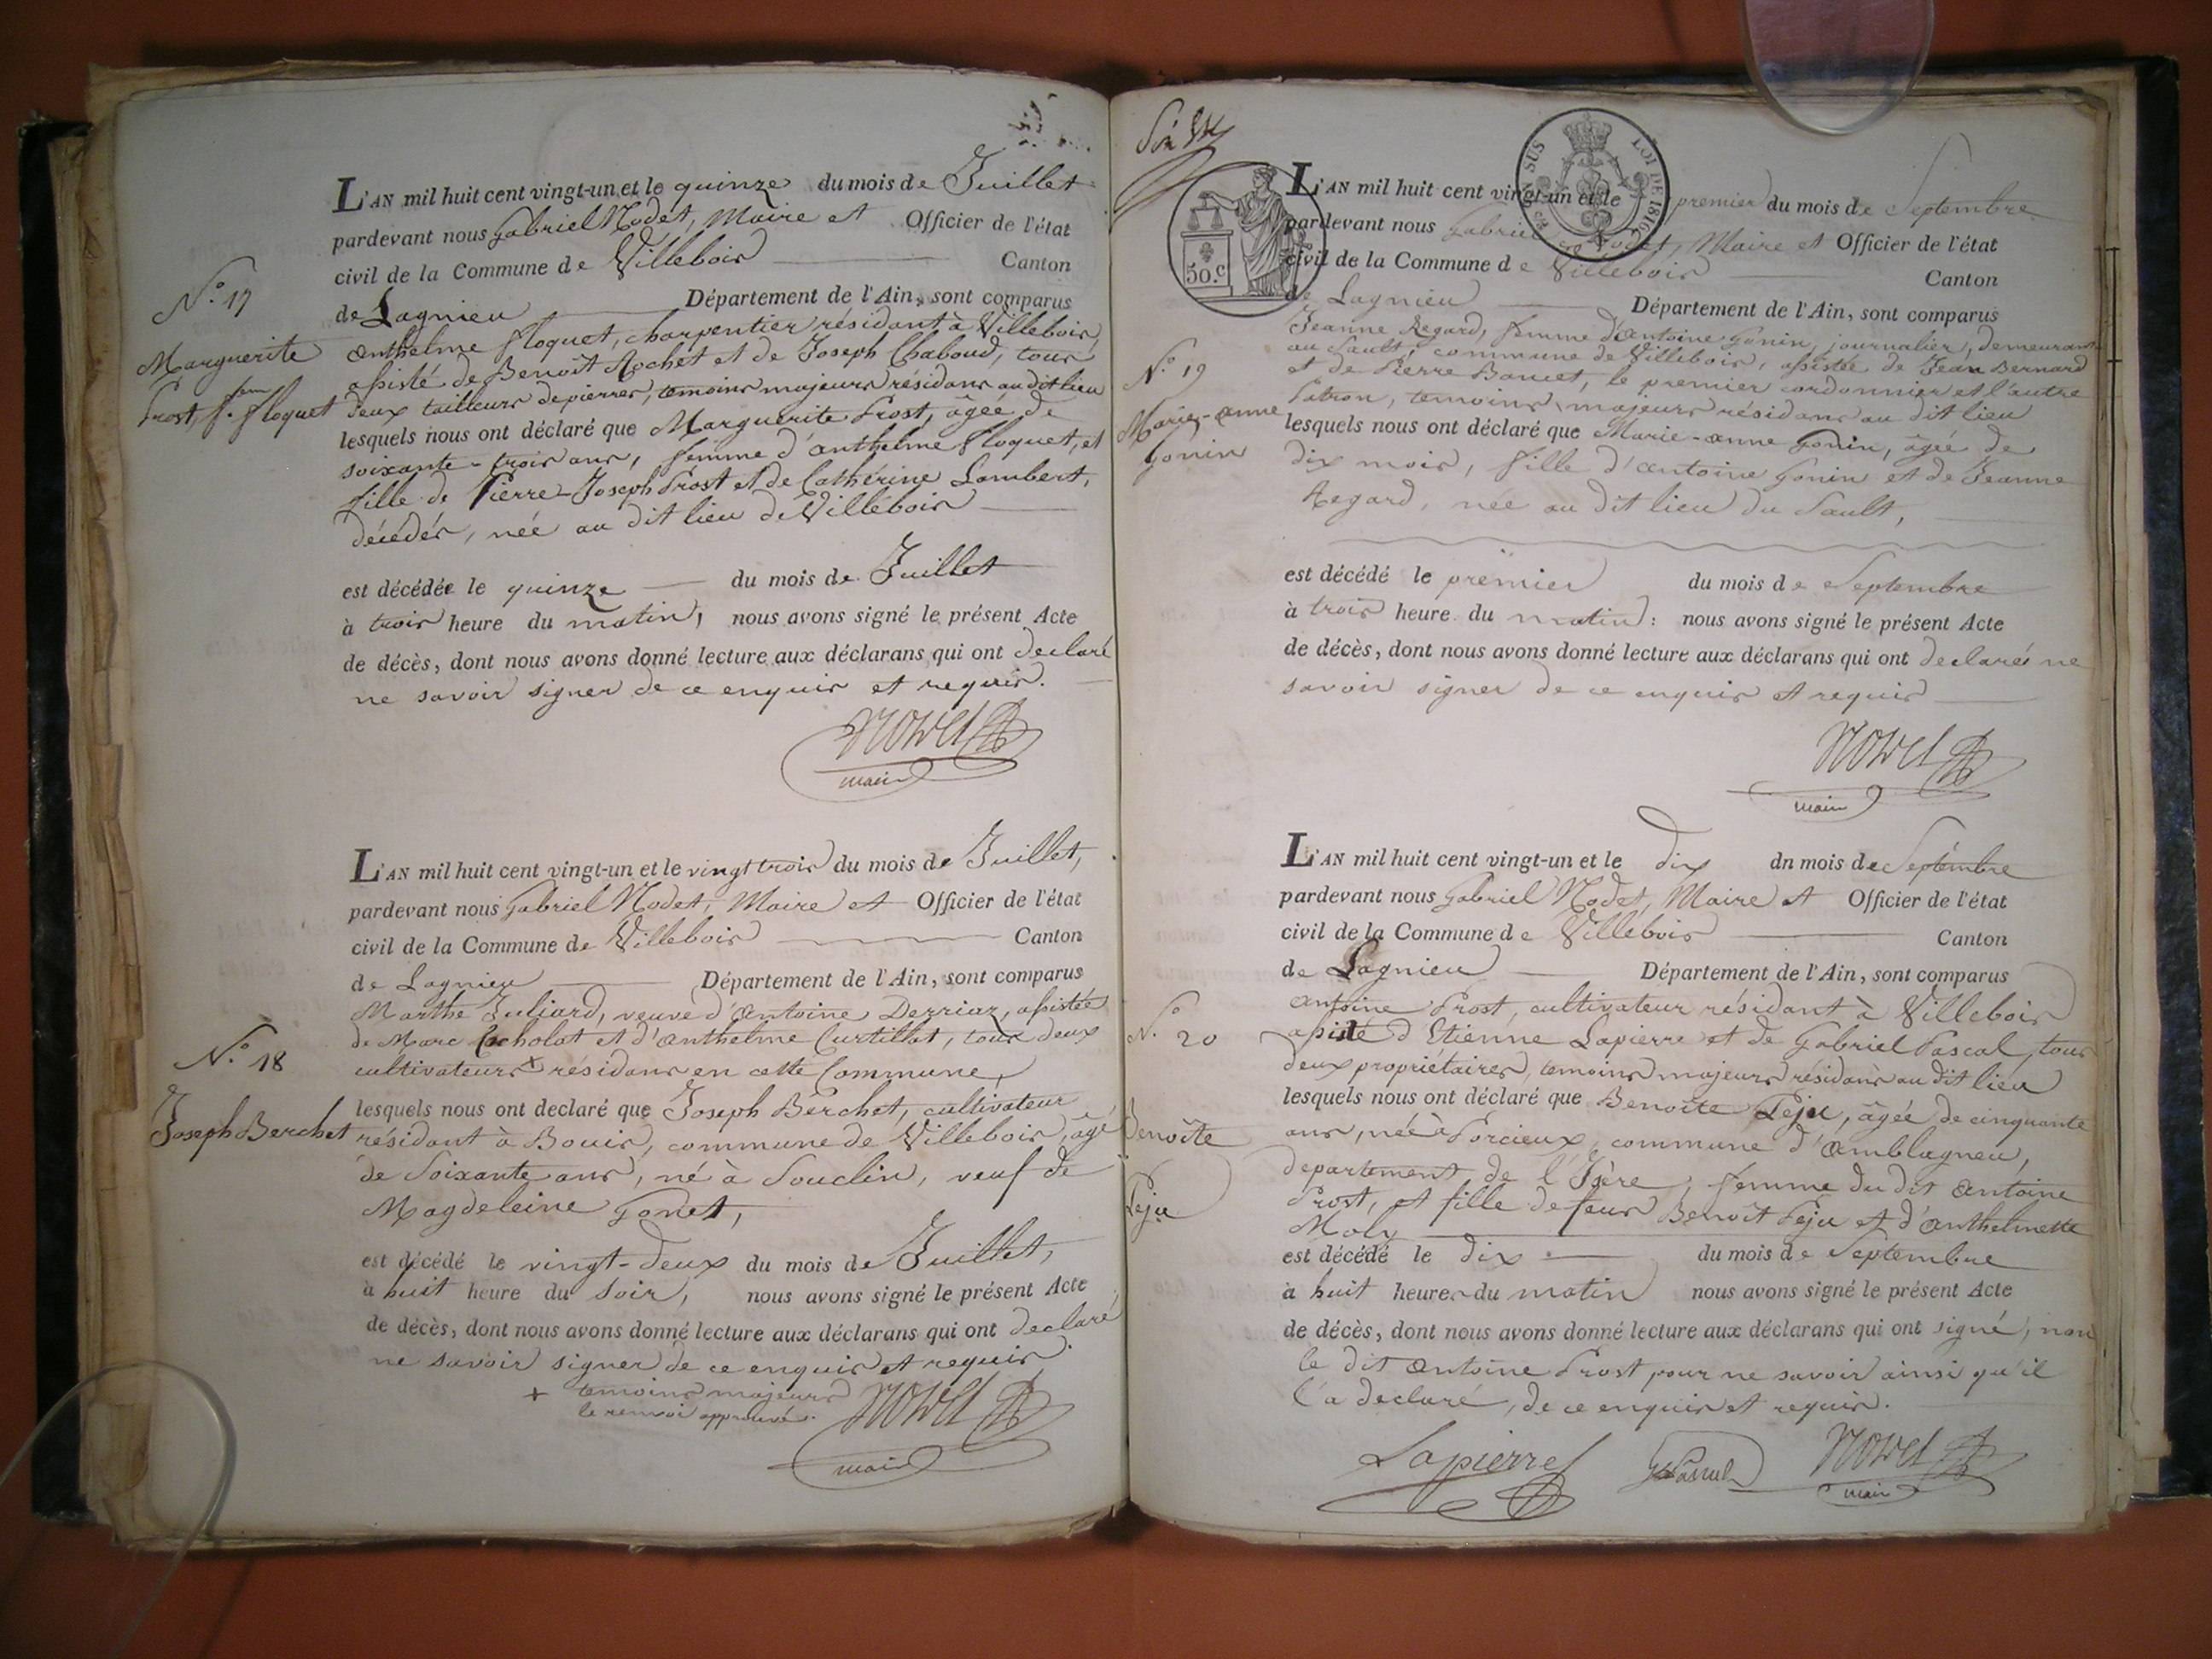 L'AN mil huit cent vingt-un et le quinze du mois de Juillet
pardevant nous Gabriel Nodet, Maire et Officier de l'état
civil de la Commune de Villebois Canton
de Lagnieu Département de l'Ain, sont comparus
anthelme floquet, charpentier résidant à Villebois,
assisté de Benoît Rochet et de Joseph Chaboud, tous
deux tailleurs de pierres, temoins majeurs résidans au dit lieu
lesquels nous ont déclaré que Marguerite Prost, âgée de
soixante-trois ans, femme d'anthelme floquet, et
fille de Pierre-Joseph Prost et de Cathérine Lambert,
décédés, née au dit lieu de Villebois
est décédée le quinze du mois de Juillet
à trois heure du matin, nous avons signé le présent Acte
de décès, dont nous avons donné lecture aux déclarans qui ont declaré
ne savoir signer de ce enquis et requis.
Nodet
maire
N.° 17
Marguerite
Prost, f.em floquet
L'AN mil huit cent vingt-un et le vingt trois du mois de Juillet,
pardevant nous Gabriel Nodet, Maire et Officier de l'état
civil de la Commune de Villebois Canton
de Lagnieu Département de l'Ain, sont comparus
Marthe Juliard, veuve d'antoine Derriaz, assistée
de Marc Cocholat et d'anthelme Curtillat, tous deux
cultivateurs + résidans en cette Commune,
lesquels nous ont declaré que Joseph Berchet, cultivateur
résidant à Bouis, commune de Villebois, agé
de Soixante ans, né à Souclin, veuf de
Magdeleine Gonet,
est décédé le vingt-deux du mois de Juillet,
à huit heure du soir, nous avons signé le présent Acte
de décès, dont nous avons donné lecture aux déclarans qui ont declaré
ne savoir signer de ce enquis et requis.
+ temoins majeurs
le renvoi approuvé.
Nodet
maire
N.° 18
Joseph Berchet
CI EN SUS LOI DE 1816
50.c
L'AN mil huit cent vingt-un et le premier du mois de Septembre
pardevant nous Gabriel Nodet, Maire et Officier de l'état
civil de la Commune de Villebois Canton
de Lagnieu Département de l'Ain, sont comparus
Jeanne Regard, femme d'antoine Gonin, journalier, demeurant
au Sault, commune de Villebois, assistée de Jean Bernard
et de Pierre Bancet, le premier cordonnier et l'autre
Patron, temoins majeurs résidans au dit lieu
lesquels nous ont déclaré que Marie-anne Gonin, âgée de
dix mois, fille d'antoine Gonin et de Jeanne
Regard, née au dit lieu du Sault,
est décédé le premier du mois de Septembre
à trois heure du matin: nous avons signé le présent Acte
de décès, dont nous avons donné lecture aux déclarans qui ont declarés ne
savoir signer de ce enquis et requis
Nodet
maire
N.° 19
Marie-anne
Gonin
L'AN mil huit cent vingt-un et le dix dn mois de Septembre
pardevant nous Gabriel Nodet, Maire et Officier de l'état
civil de la Commune de Villebois Canton
de Lagnieu Département de l'Ain, sont comparus
antoine Prost, cultivateur résidant à Villebois
assisté d'Etienne Lapierre et de Gabriel Pascal, tous
deux propriétaires, temoins majeurs résidans au dit lieu
lesquels nous ont déclaré que Benoîte Peju, âgée de cinquante
ans, née à Porcieux, commune d'amblagneu,
departement de l'Isère, femme du dit antoine
Prost, et fille de feus Benoît Peju et d'anthelmette
Moly
est décédé le dix du mois de Septembre
à huit heures du matin nous avons signé le présent Acte
de décès, dont nous avons donné lecture aux déclarans qui ont signé, non
le dit antoine Prost pour ne savoir ainsi qu'il
l'a declaré, de ce enquis et requis.
Lapierre G Pascal Nodet
maire
N.° 20
Benoîte
Peju